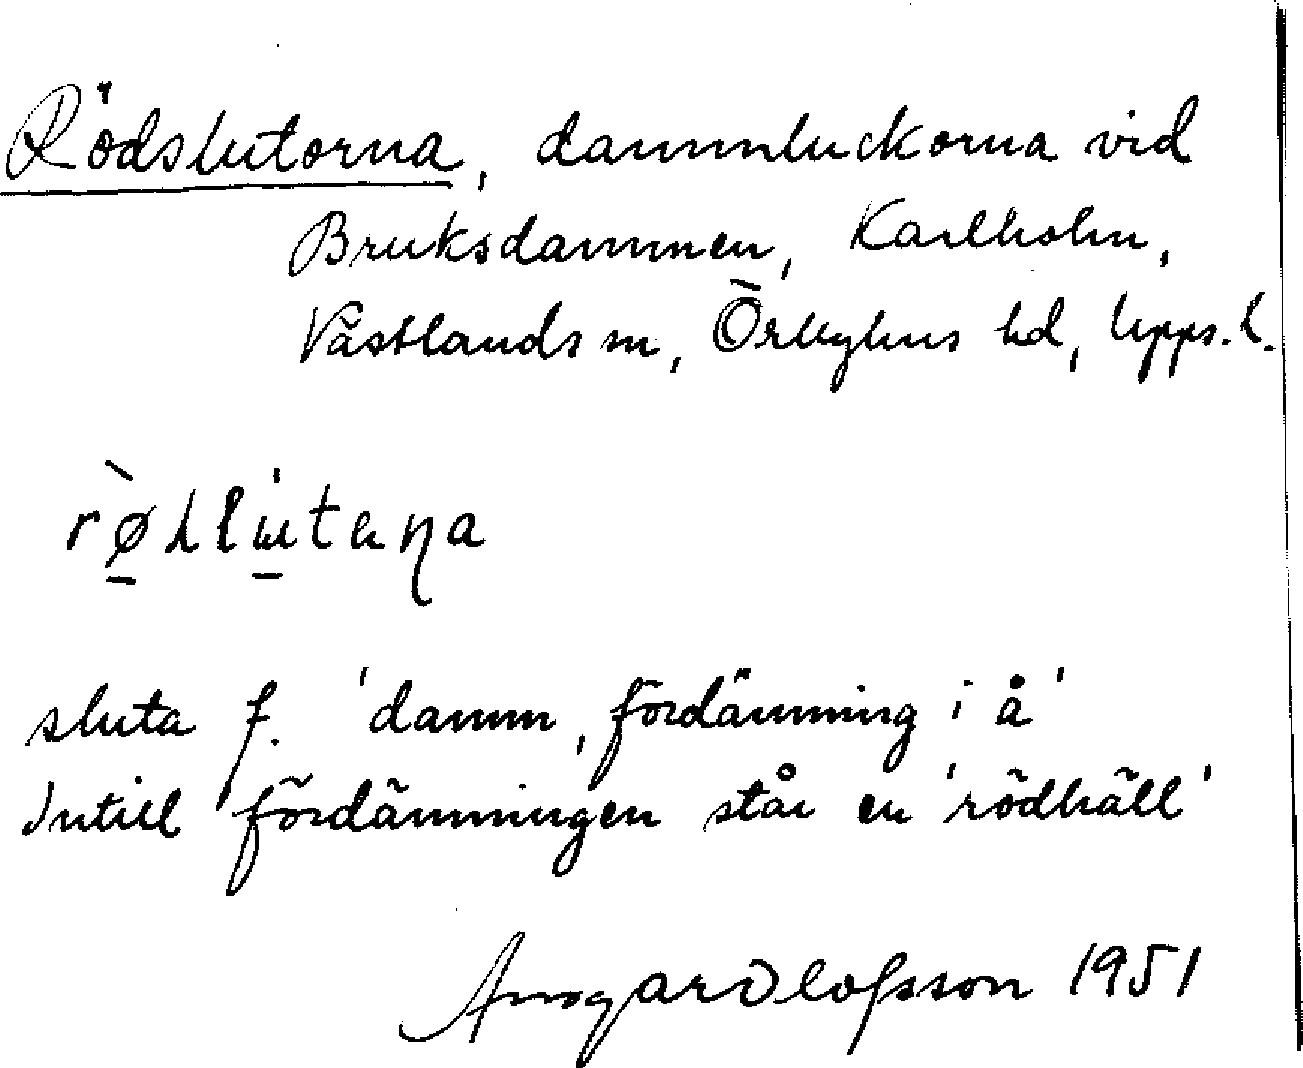 Rödslutorna, dammluckorna vid
Bruksdammen, Karlholm,
Västlands sn, Örbyhus hd, Upps. l.
sluta f. 'damm, fördämning i å'
Intill fördämningen står en 'rödhäll'
Ansgar Olofsson 1951